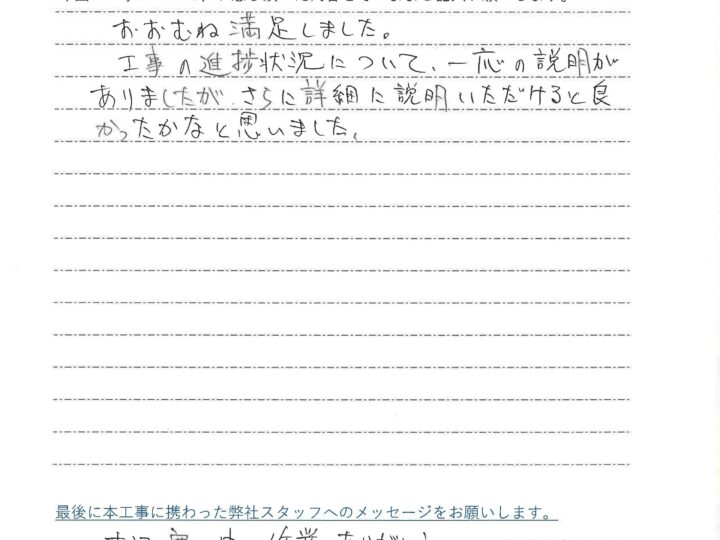 おおむね満足しました。
工事の進捗状況について、一応の説明が
ありましたが、さらに詳細に説明いただけると良
かったかなと思いました。
最後に本工事に携わった弊社スタッフへのメッセージをお願いします。